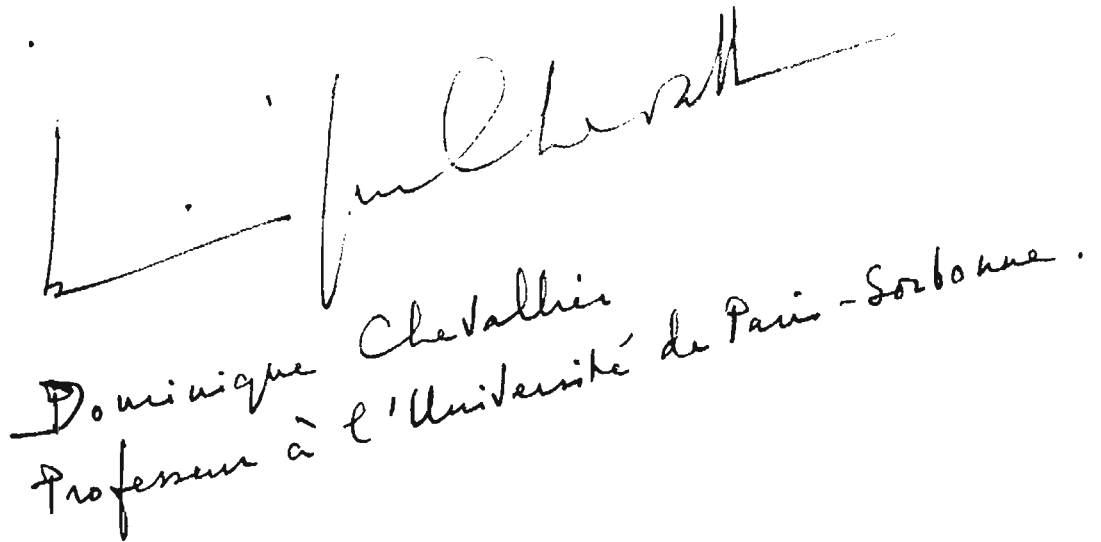 Dominique Chevallier
Professeur à l'Université de Paris-Sorbonne.